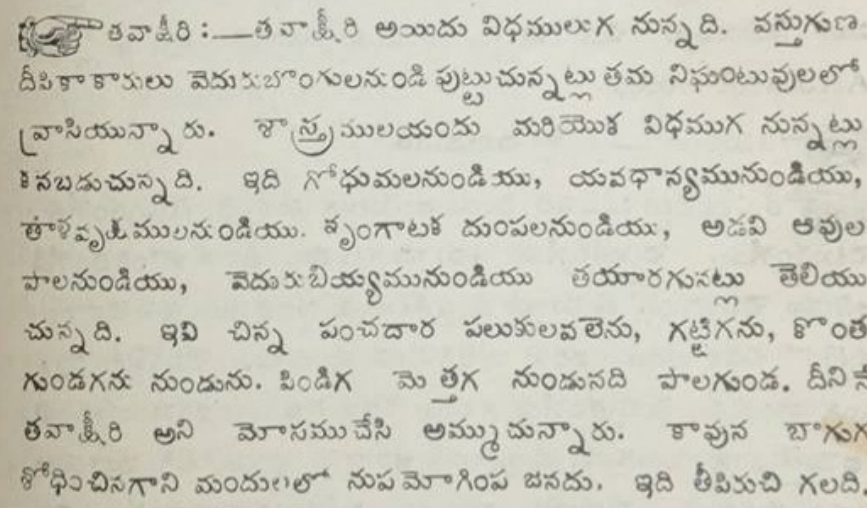 తవాక్షీరి :—తవాక్షీరి అయిదు విధములుగ నున్నది. వస్తుగుణ
దీపికాకారులు వెదురుబొంగులనుండి పుట్టుచున్నట్లు తమ నిఘంటువులలో
వ్రాసియున్నారు. శాస్త్రములయందు మరియొక విధముగ నున్నట్లు
కనబడుచున్నది. ఇది గోధుమలనుండియు, యవధాన్యమునుండియు,
తాళవృక్షములనుండియు. శృంగాటక దుంపలనుండియు, అడవి ఆవుల
పాలనుండియు, వెదురుబియ్యమునుండియు తయారగునట్లు తెలియు
చున్నది. ఇవి చిన్న పంచదార పలుకులవలెను, గట్టిగను, కొంత
గుండగను నుండును. పిండిగ మెత్తగ నుండునది పాలగుండ. దీనినే
తవాక్షీరి అని మోసముచేసి అమ్ముచున్నారు. కావున బాగుగ
శోధించినగాని మందులలో నుపయోగింప జనదు. ఇది తీపిరుచి గలది.